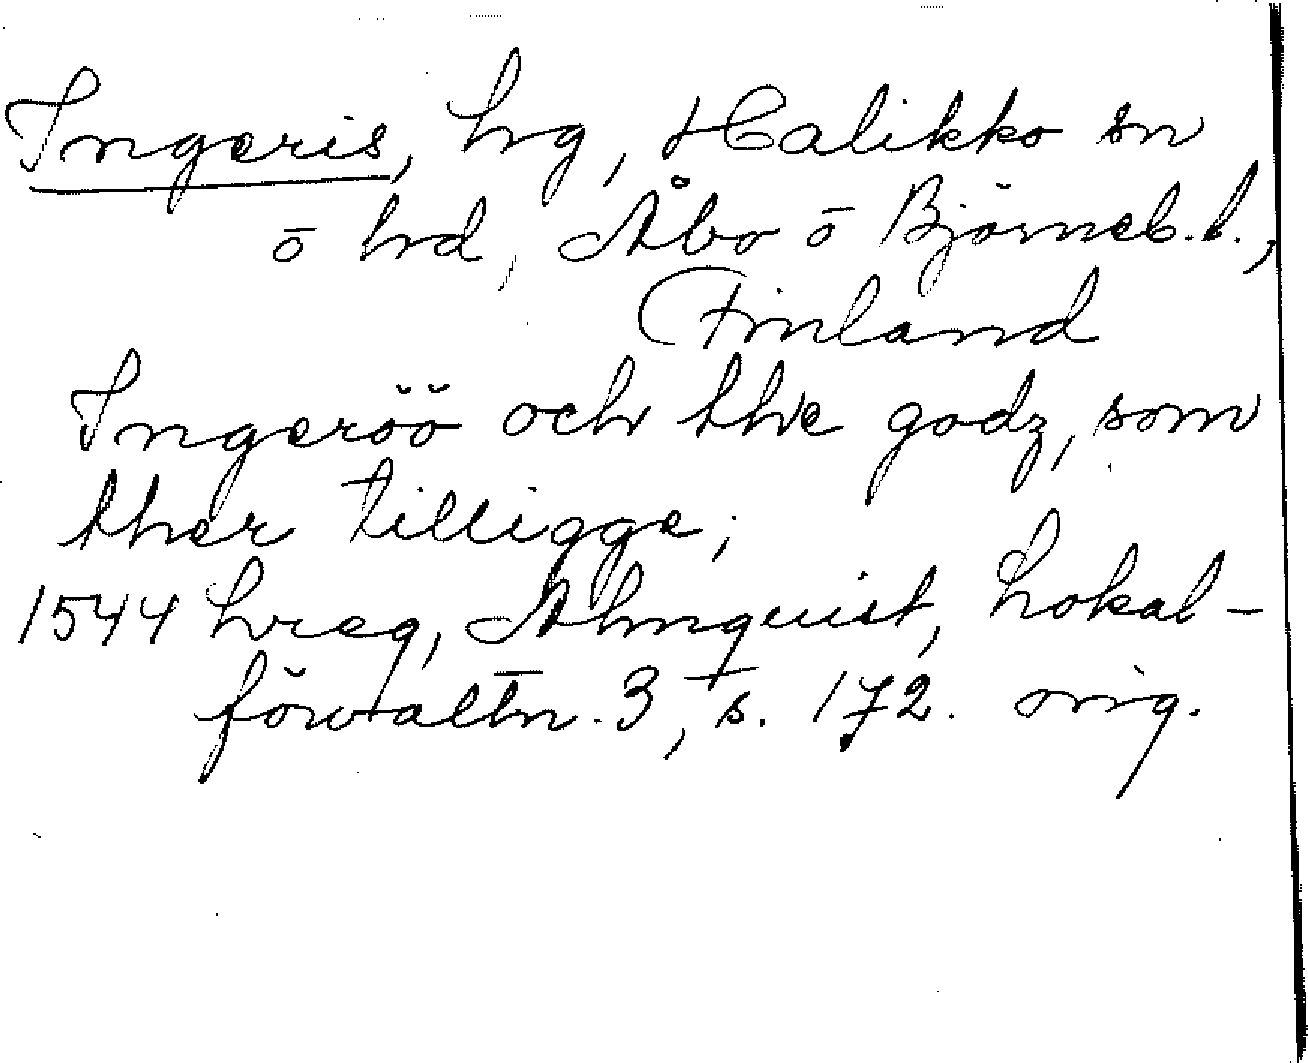 Ingeris, hrg, Halikko sn
ō hrd, Åbo ō Björneb. l.,
Finland
Ingeröö och the godz, som
ther tilligge;
1544 hreg, Almquist, Lokal-
förvaltn. 3, s. 172. orig.